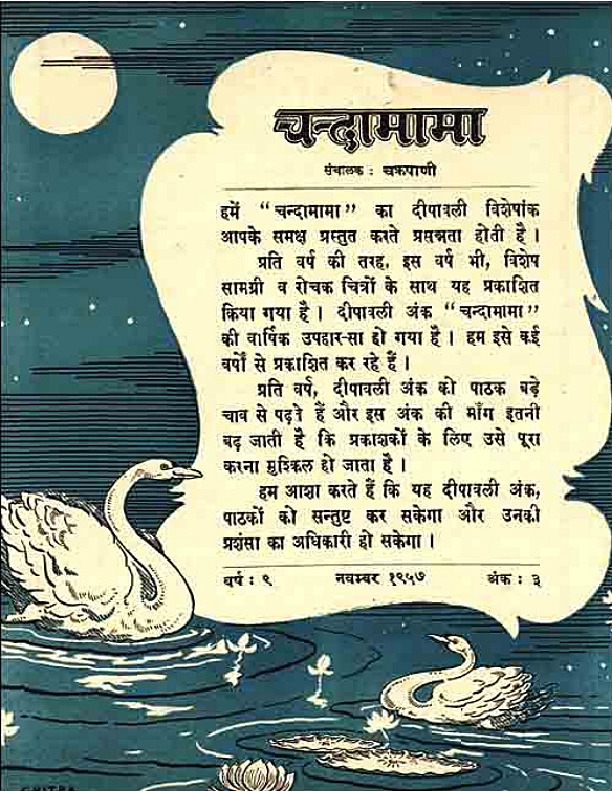 चन्दामामा
संचालक : चक्रपाणी
हमें "चन्दामामा" का दीपावली विशेषांक
आपके समक्ष प्रस्तुत करते प्रसन्नता होती है।
प्रति वर्ष की तरह, इस वर्ष भी, विशेष
सामग्री व रोचक चित्रों के साथ यह प्रकाशित
किया गया है। दीपावली अंक "चन्दामामा"
की वार्षिक उपहार-सा हो गया है। हम इसे कई
वर्षों से प्रकाशित कर रहे हैं।
प्रति वर्ष, दीपावली अंक को पाठक बड़े
चाव से पढ़ते हैं और इस अंक की माँग इतनी
बढ़ जाती है कि प्रकाशकों के लिए उसे पूरा
करना मुश्किल हो जाता है।
हम आशा करते हैं कि यह दीपावली अंक,
पाठकों को सन्तुष्ट कर सकेगा और उनकी
प्रशंसा का अधिकारी हो सकेगा।
वर्ष : ९ नवम्बर १९५७ अंक : ३